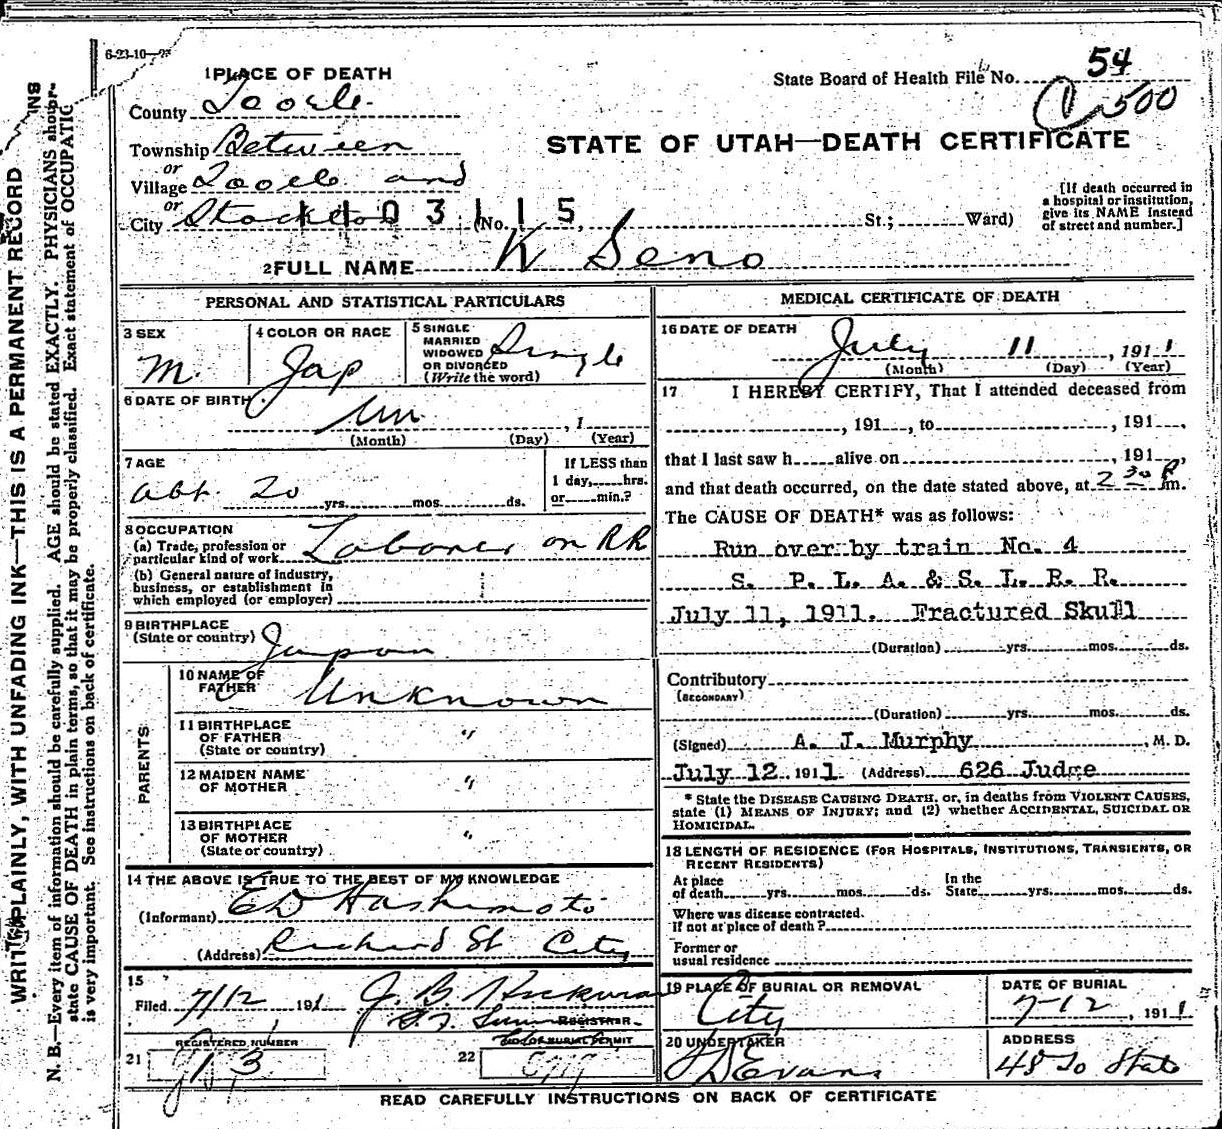 6-23-10
State Board of Health File No. 54
1 500
1 PLACE OF DEATH
County Tooele
STATE OF UTAH—DEATH CERTIFICATE
Township Between
or
Village Tooele and
or
City Stockton (No. St.; Ward)
1103115
[If death occurred in
a hospital or institution,
give its NAME instead
of street and number.]
2 FULL NAME K Seno
PERSONAL AND STATISTICAL PARTICULARS
3 SEX
M.
4 COLOR OR RACE
Jap
5 SINGLE
MARRIED
WIDOWED
OR DIVORCED
(Write the word)
Single
6 DATE OF BIRTH
Un , 1
(Month) (Day) (Year)
7 AGE
abt. 20 yrs. mos. ds.
If LESS than
1 day, hrs.
or min.?
8 OCCUPATION
(a) Trade, profession or
particular kind of work Laborer on RR
(b) General nature of industry,
business, or establishment in
which employed (or employer)
9 BIRTHPLACE
(State or country) Japan
PARENTS
10 NAME OF
FATHER Unknown
11 BIRTHPLACE
OF FATHER
(State or country) "
12 MAIDEN NAME
OF MOTHER "
13 BIRTHPLACE
OF MOTHER
(State or country) "
14 THE ABOVE IS TRUE TO THE BEST OF MY KNOWLEDGE
(Informant) ED Hashimoto
(Address) Richard St City
15
Filed 7/12 191
REGISTRAR
REGISTERED NUMBER
21
22
MEDICAL CERTIFICATE OF DEATH
16 DATE OF DEATH
July 11 , 1911
(Month) (Day) (Year)
17 I HEREBY CERTIFY, That I attended deceased from
, 191 , to , 191 ,
that I last saw h alive on , 191 ,
and that death occurred, on the date stated above, at 2 30 P m.
The CAUSE OF DEATH* was as follows:
Run over by train No. 4
S. P. L. A. & S. L. R. R.
July 11, 1911. Fractured Skull
(Duration) yrs. mos. ds.
Contributory
(SECONDARY)
(Duration) yrs. mos. ds.
(Signed) A. J. Murphy , M. D.
July 12 1911 (Address) 626 Judge
* State the DISEASE CAUSING DEATH, or, in deaths from VIOLENT CAUSES,
state (1) MEANS OF INJURY; and (2) whether ACCIDENTAL, SUICIDAL or
HOMICIDAL.
18 LENGTH OF RESIDENCE (FOR HOSPITALS, INSTITUTIONS, TRANSIENTS, OR
RECENT RESIDENTS)
At place
of death yrs. mos. ds.
In the
State yrs. mos. ds.
Where was disease contracted.
If not at place of death?
Former or
usual residence
19 PLACE OF BURIAL OR REMOVAL
City
DATE OF BURIAL
7-12 , 1911
20 UNDERTAKER
Evans
ADDRESS
48 So State
READ CAREFULLY INSTRUCTIONS ON BACK OF CERTIFICATE
WRITE PLAINLY, WITH UNFADING INK—THIS IS A PERMANENT RECORD
N. B.—Every item of information should be carefully supplied. AGE should be stated EXACTLY. PHYSICIANS
state CAUSE OF DEATH in plain terms, so that it may be properly classified. Exact statement of
is very important. See instructions on back of certificate.